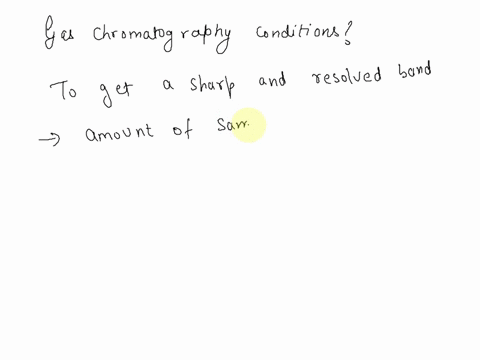 Gas chromatography conditions?
To get a sharp and resolved band
→ amount of sam